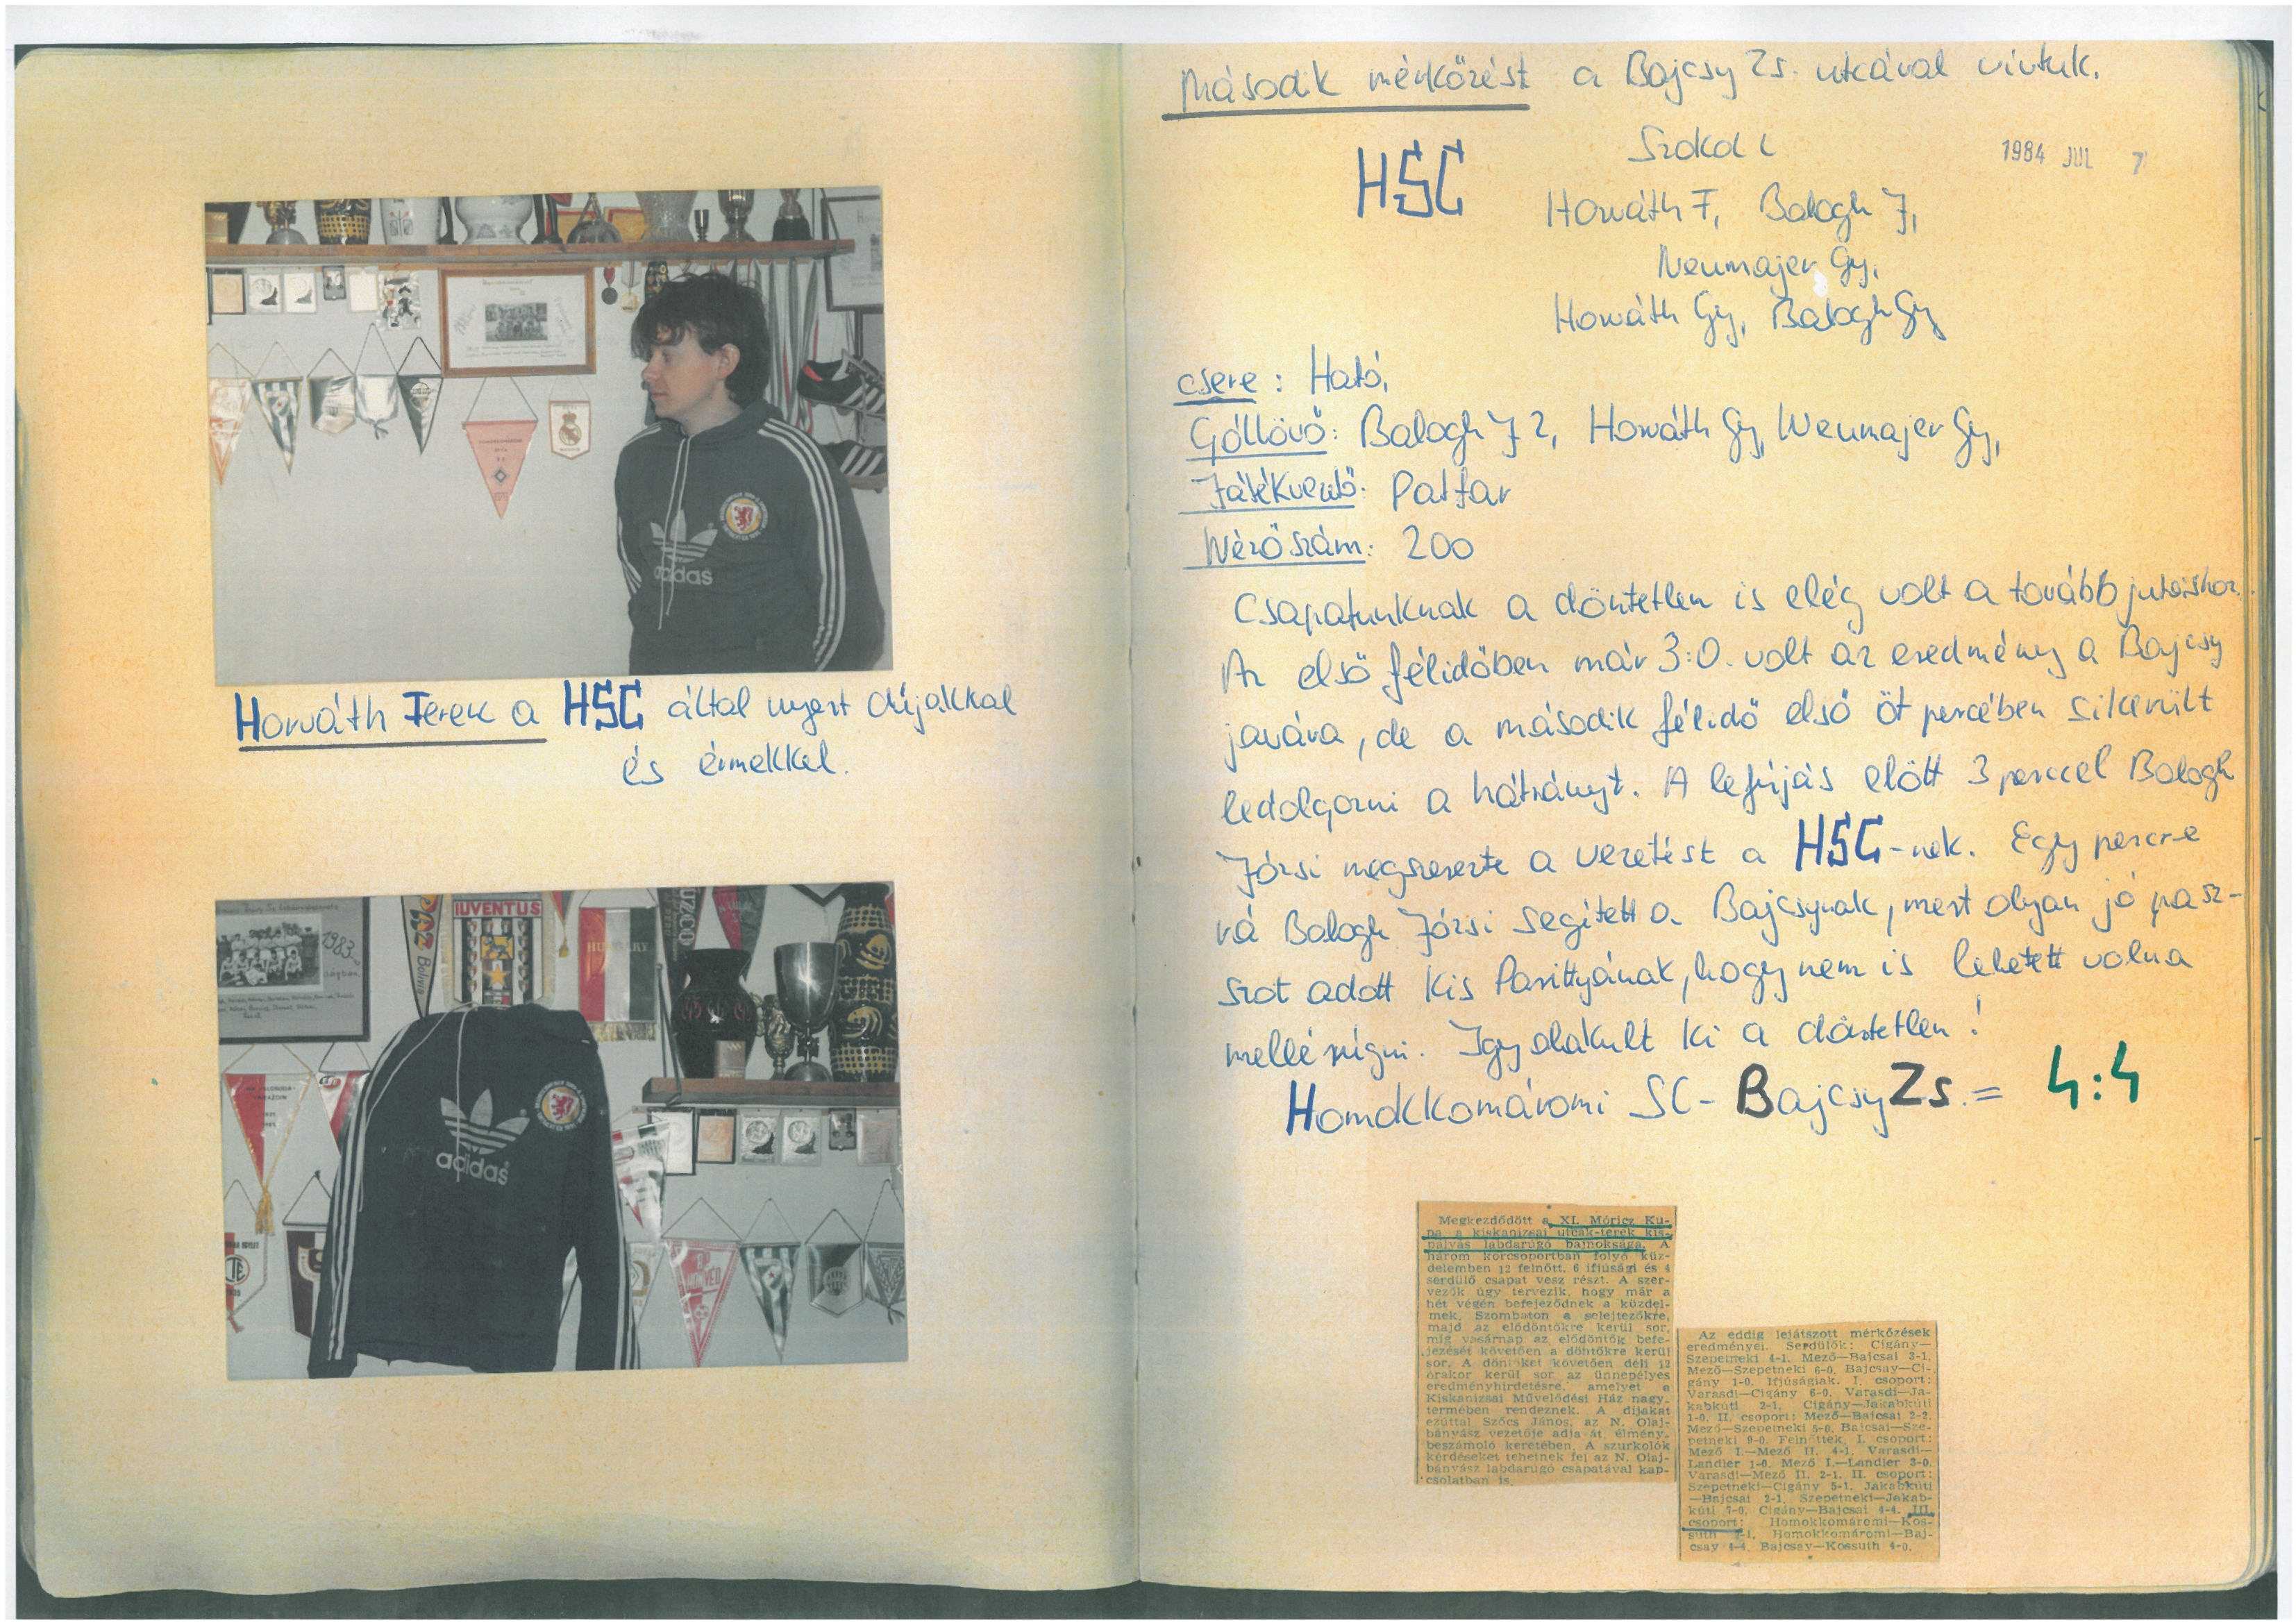 Horváth Ferenc a HSC által nyert díjakkal
és érmekkel.
adidas
1983
JUVENTUS
HUNGARY
adidas
Második mérkőzést a Bajcsy Zs. utcával vívtuk.
HSC
1984 JUL 7
Szokol L
Horváth F, Balogh J,
Neumajer Gy,
Horváth Gy, Balogh Gy
csere: Ható,
Góllövő: Balogh J 2, Horváth Gy, Neumajer Gy,
Játékvezető: Patfar
Nézőszám: 200
Csapatunknak a döntetlen is elég volt a tovább jutáshoz.
Az első félidőben már 3:0. volt az eredmény a Bajcsy
javára, de a második félidő első öt percében sikerült
ledolgozni a hátrányt. A lefújás előtt 3 perccel Balogh
Józsi megszerezte a vezetést a HSC-nek. Egy percre
rá Balogh Józsi segített a Bajcsynak, mert olyan jó pasz-
szot adott Kis Parittyának, hogy nem is lehetett volna
mellé rúgni. Igy alakult ki a döntetlen!
Homokkomáromi SC - Bajcsy Zs. = 4:4
Megkezdődött a XI. Móricz Ku-
pa a kiskanizsai utcák-terek kis-
pályás labdarúgó bajnoksága. A
három korcsoportban folyó küz-
delemben 12 felnőtt, 6 ifjúsági és 4
serdülő csapat vesz részt. A szer-
vezők úgy tervezik, hogy már a
hét végén befejeződnek a küzdel-
mek. Szombaton a selejtezőkre,
majd az elődöntőkre kerül sor,
míg vasárnap az elődöntők befe-
jezését követően a döntőkre kerül
sor. A döntőket követően déli 12
órakor kerül sor az ünnepélyes
eredményhirdetésre, amelyet a
Kiskanizsai Művelődési Ház nagy-
termében rendeznek. A díjakat
ezúttal Szőcs János, az N. Olaj-
bányász vezetője adja át, élmény-
beszámoló keretében. A szurkolók
kérdéseket tehetnek fel az N. Olaj-
bányász labdarúgó csapatával kap-
csolatban is.
Az eddig lejátszott mérkőzések
eredményei. Serdülők: Cigány—
Szepetneki 4-1. Mező—Bajcsai 3-1.
Mező—Szepetneki 6-0. Bajcsay—Ci-
gány 1-0. Ifjúságiak. I. csoport:
Varasdi—Cigány 6-0. Varasdi—Ja-
kabkúti 2-1. Cigány—Jakabkúti
1-0. II. csoport: Mező—Bajcsai 2-2.
Mező—Szepetneki 5-0. Bajcsai—Sze-
petneki 9-0. Felnőttek. I. csoport:
Mező I.—Mező II. 4-1. Varasdi—
Landler 1-0. Mező I.—Landler 3-0.
Varasdi—Mező II. 2-1. II. csoport:
Szepetneki—Cigány 5-1. Jakabkúti
—Bajcsai 2-1. Szepetneki—Jakab-
kúti 7-0. Cigány—Bajcsai 4-4. III.
csoport: Homokkomáromi—Kos-
suth Homokkomáromi—Baj-
csay 4-4. Bajcsay—Kossuth 4-0.